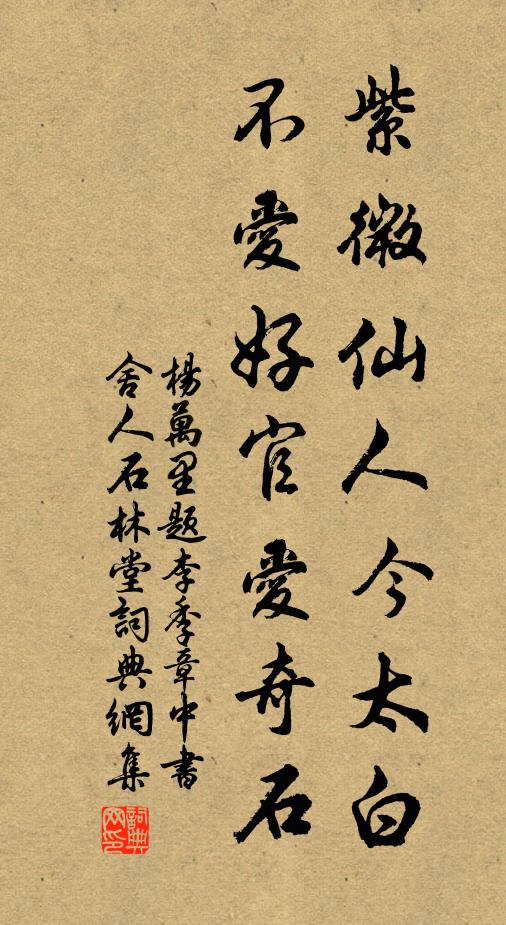 紫微仙人今太白
不愛好官愛奇石
楊萬里題李季章中書
舍人石林堂詞典網集
詞典網印